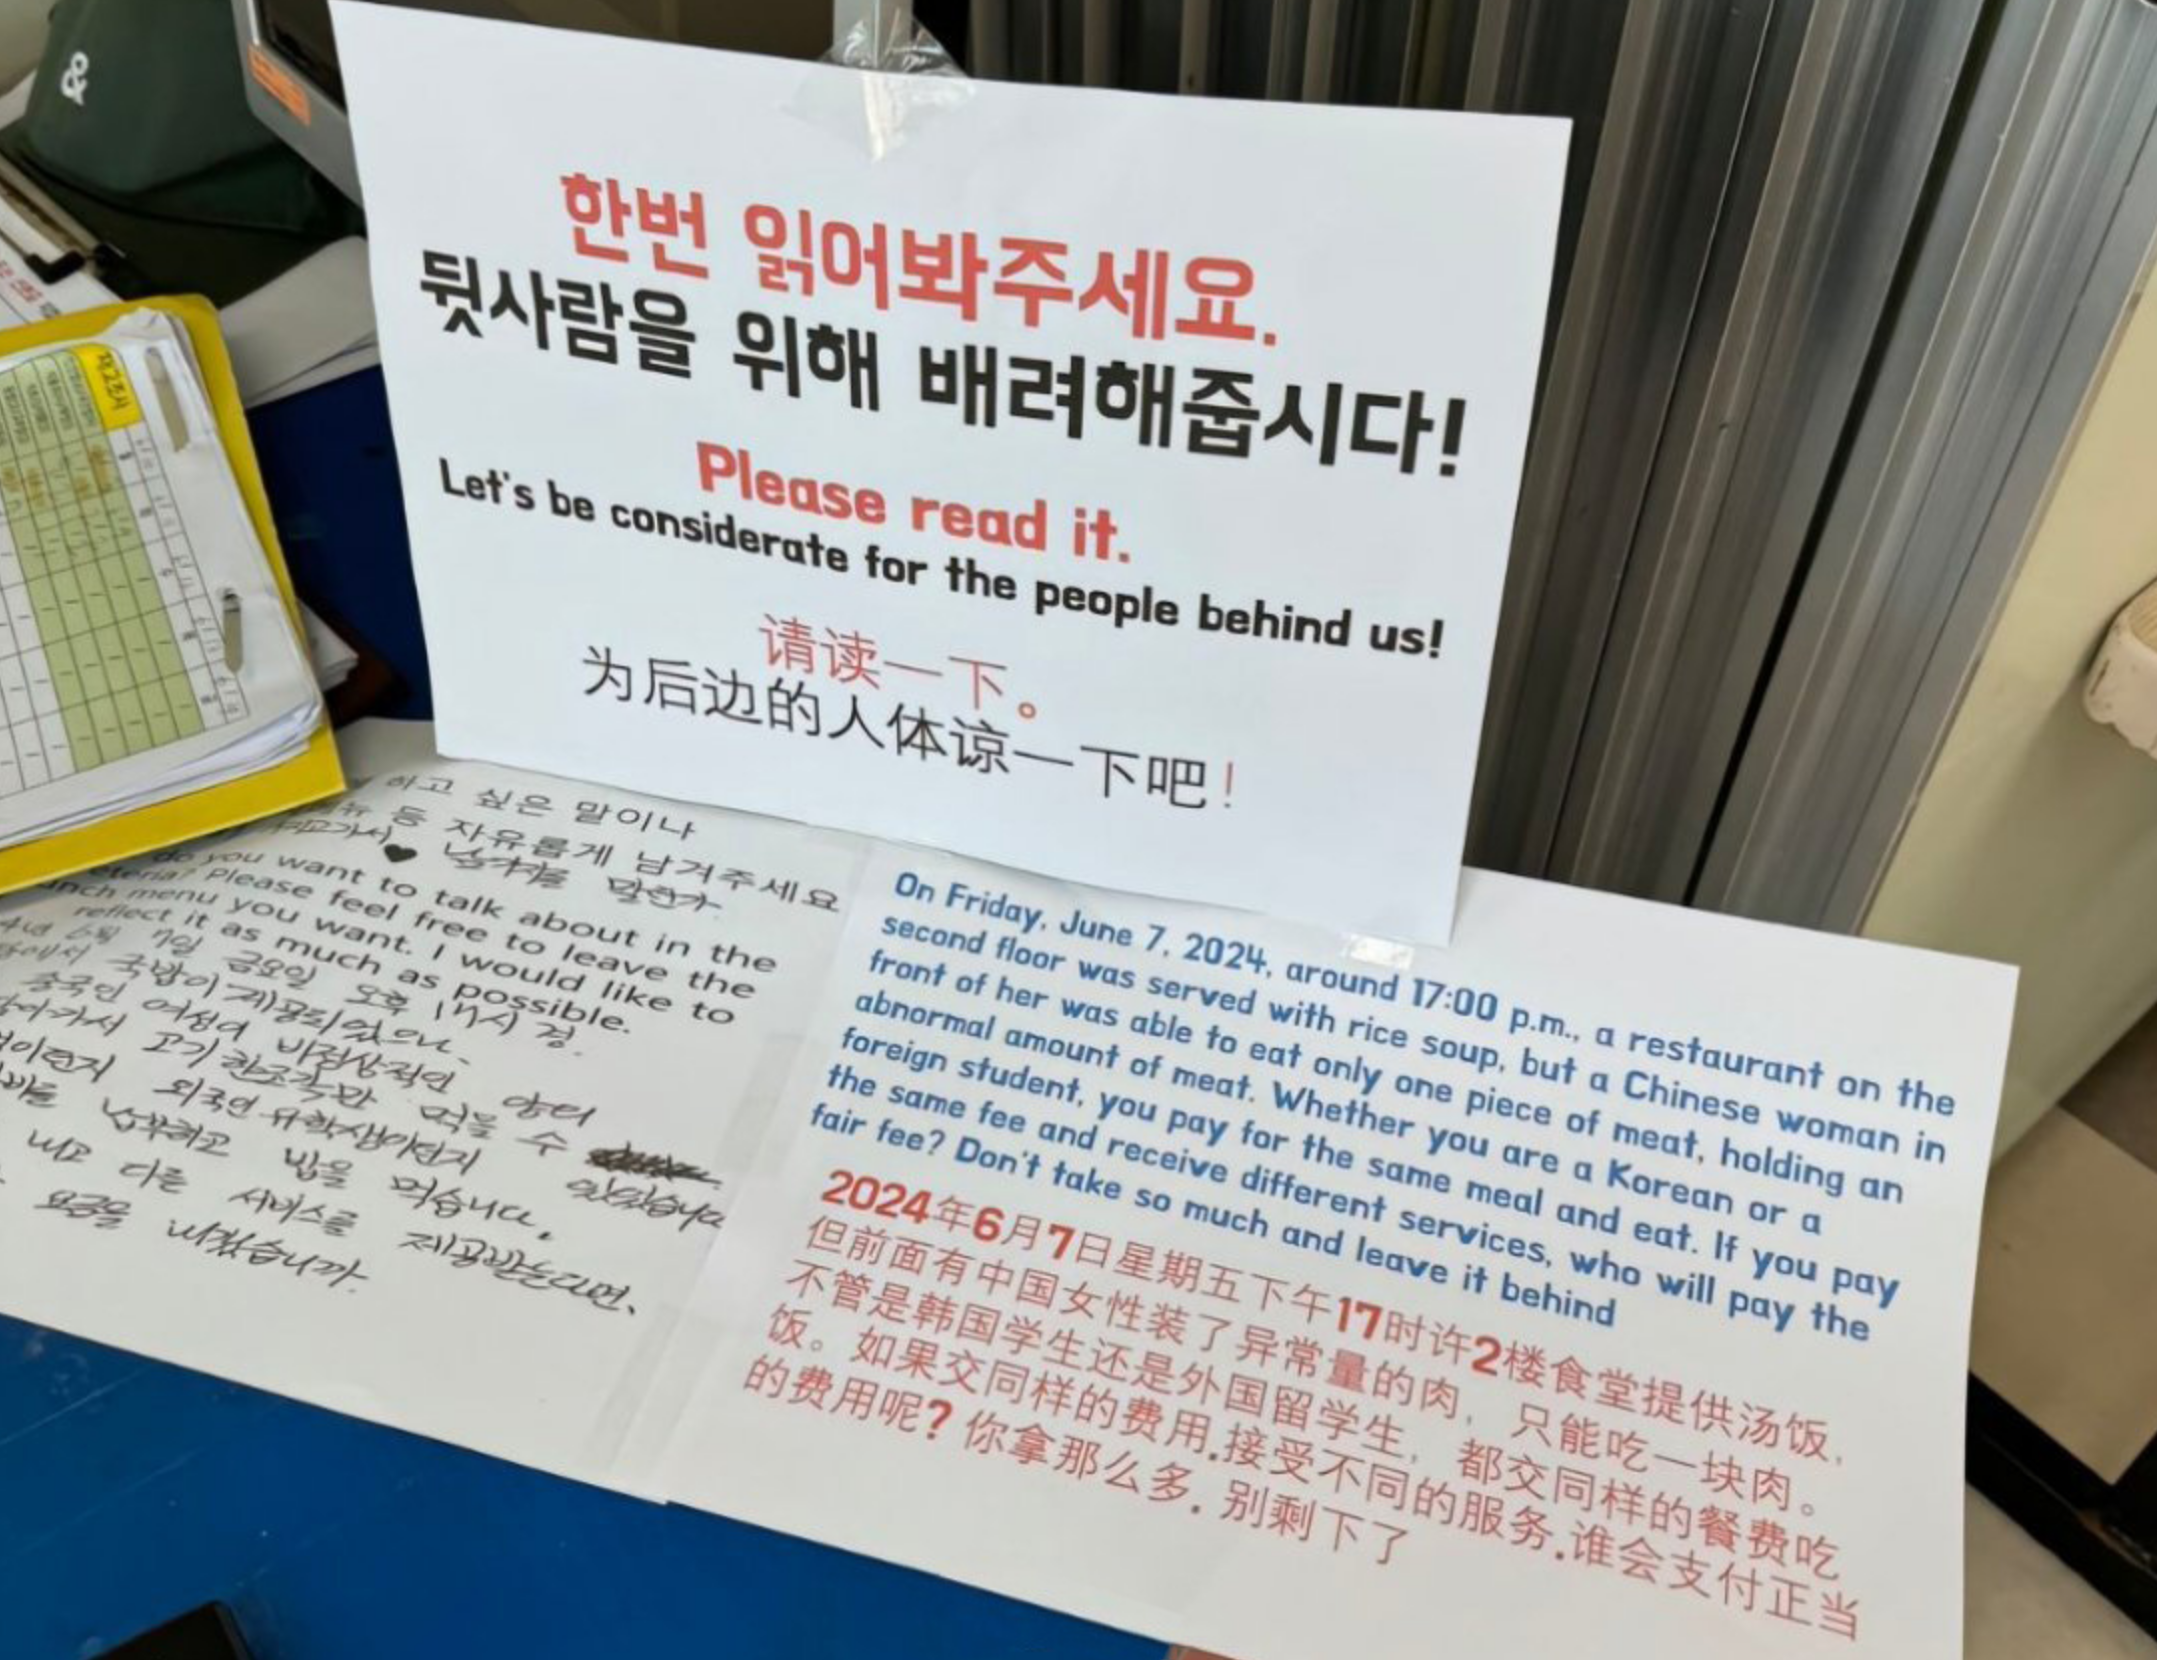 &
한번 읽어봐주세요.
뒷사람을 위해 배려해줍시다!
Please read it.
Let's be considerate for the people behind us!
请读一下。
为后边的人体谅一下吧!
하고 싶은 말이나
등 자유롭게 남겨주세요
do you want to talk about in the
Please feel free to leave the
menu you want. I would like to
reflect it as much as possible.
6월 7일 금요일 오후 17시 경.
국밥이 제공되었으나,
중국인 여성이 비정상적인 양의
고기 한조각만 먹을 수 있었습니다
외국인 유학생이던지
납부하고 밥을 먹습니다.
내고 다른 서비스를 제공받는다면,
요금을 내겠습니까.
On Friday, June 7, 2024, around 17:00 p.m., a restaurant on the
second floor was served with rice soup, but a Chinese woman in
front of her was able to eat only one piece of meat, holding an
abnormal amount of meat. Whether you are a Korean or a
foreign student, you pay for the same meal and eat. If you pay
the same fee and receive different services, who will pay the
fair fee? Don't take so much and leave it behind
2024年6月7日星期五下午17时许2楼食堂提供汤饭,
但前面有中国女性装了异常量的肉, 只能吃一块肉。
不管是韩国学生还是外国留学生, 都交同样的餐费吃
饭。如果交同样的费用.接受不同的服务.谁会支付正当
的费用呢? 你拿那么多. 别剩下了